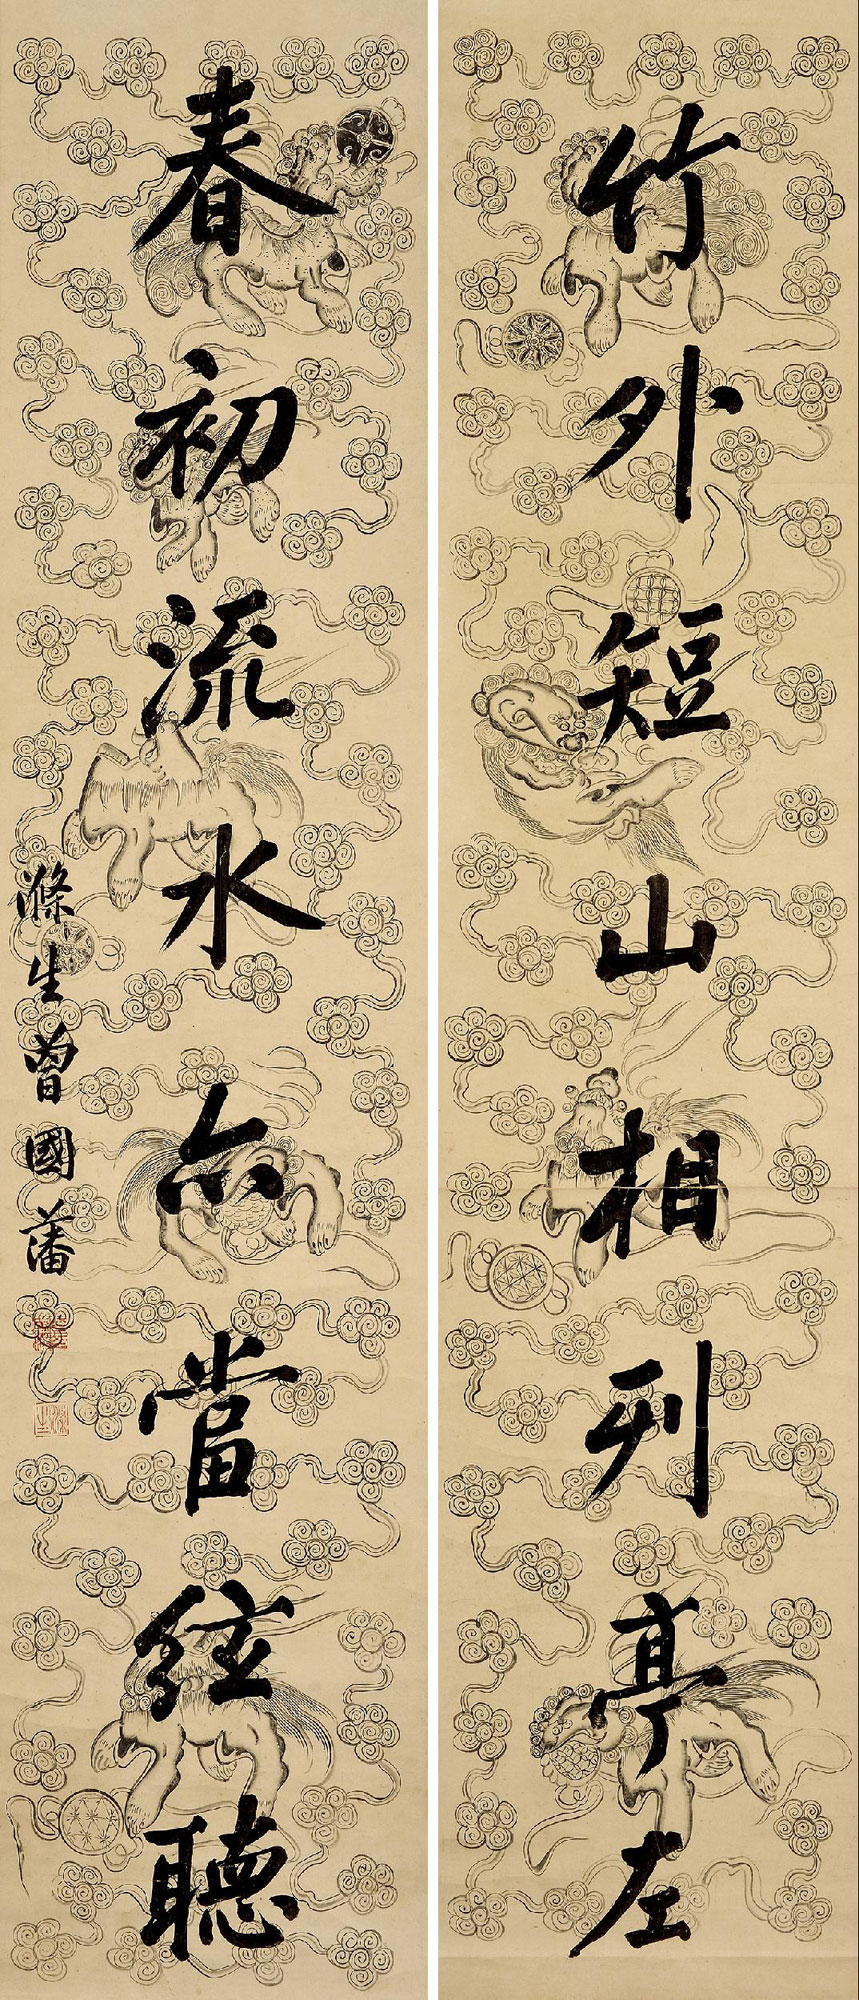 竹外短山相列亭左
春初流水亦當絃聽
滌生曾國藩